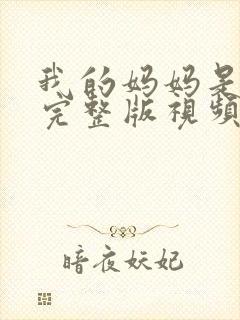 我的妈妈是
完整版視頻
暗夜妖妃